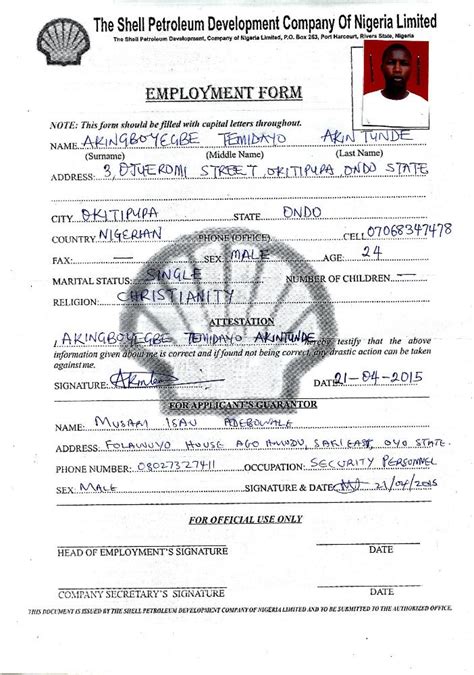 The Shell Petroleum Development Company Of Nigeria Limited
The Shell Petroleum Development, Company of Nigeria Limited, P.O. Box 263, Port Harcourt, Rivers State, Nigeria
EMPLOYMENT FORM
NOTE: This form should be filled with capital letters throughout.
NAME: AKINGBOYEGBE TEMIDAYO AKINTUNDE
(Surname) (Middle Name) (Last Name)
ADDRESS: 3, OJUEROMI STREET OKITIPUPA ONDO STATE
CITY OKITIPUPA STATE: ONDO
COUNTRY NIGERIAN PHONE (OFFICE) CELL 07068347478
FAX: SEX MALE AGE: 24
MARITAL STATUS: SINGLE NUMBER OF CHILDREN:
RELIGION: CHRISTIANITY
ATTESTATION
I, AKINGBOYEGBE TEMIDAYO AKINTUNDE hereby testify that the above
information given about me is correct and if found not being correct, any drastic action can be taken
against me.
SIGNATURE: DATE 21-04-2015
FOR APPLICANT'S GUARANTOR
NAME: ISAU ADEBOWALE
ADDRESS: HOUSE AGO AMODU, SAKI EAST, OYO STATE.
PHONE NUMBER: 08027327411 OCCUPATION: SECURITY PERSONNEL
SEX MALE SIGNATURE & DATE 21/04/2015
FOR OFFICIAL USE ONLY
HEAD OF EMPLOYMENT'S SIGNATURE DATE
COMPANY SECRETARY'S SIGNATURE DATE
THIS DOCUMENT IS ISSUED BY THE SHELL PETROLEUM DEVELOPMENT COMPANY OF NIGERIA LIMITED AND TO BE SUBMITTED TO THE AUTHORIZED OFFICE.